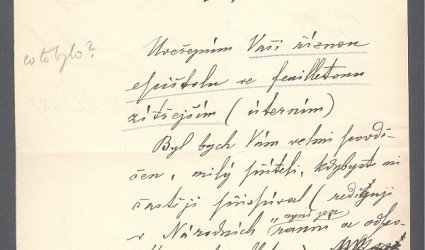 co to bylo?
Uveřejním Vaši řáznou
epištolu ve feuilletonu
zítřejším (úterním)
Byl bych Vám velmi povdě-
čen, milý příteli, kdybyste mi
častěji přispíval (rediguji
nyní
v Národních ranní a odpo-